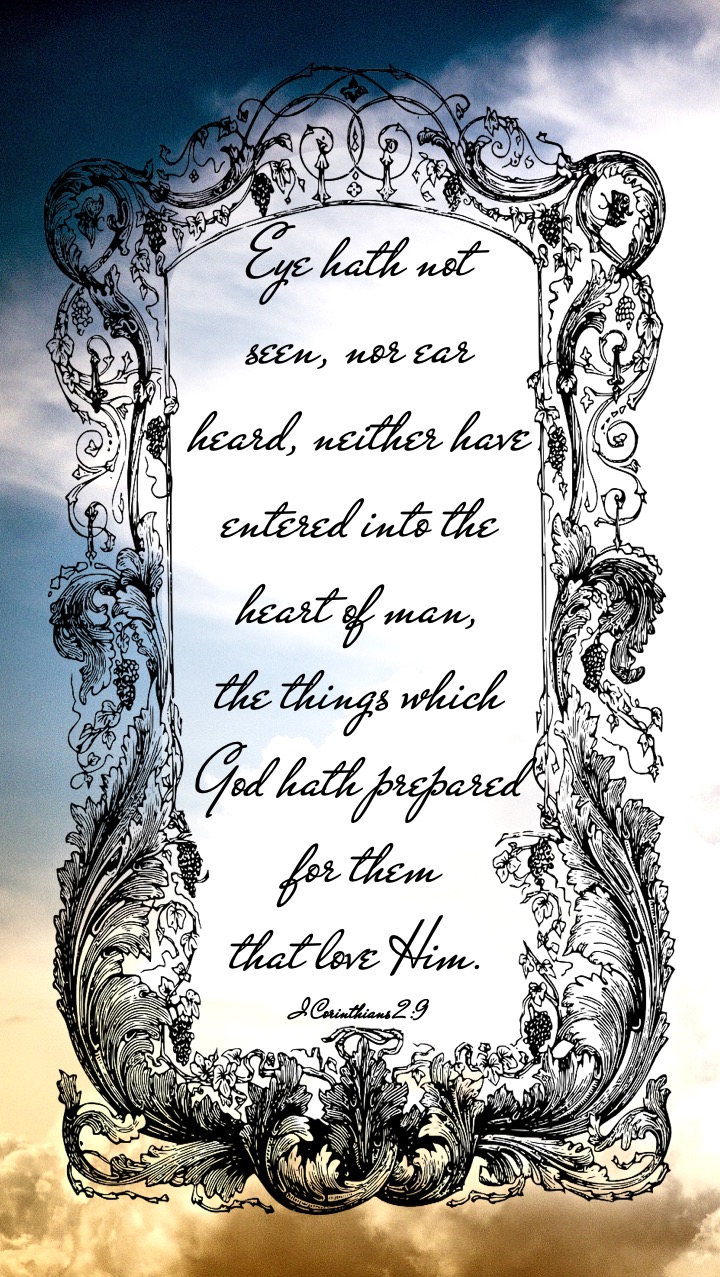 Eye hath not
seen, nor ear
heard, neither have
entered into the
heart of man,
the things which
God hath prepared
for them
that love Him.
I Corinthians 2:9